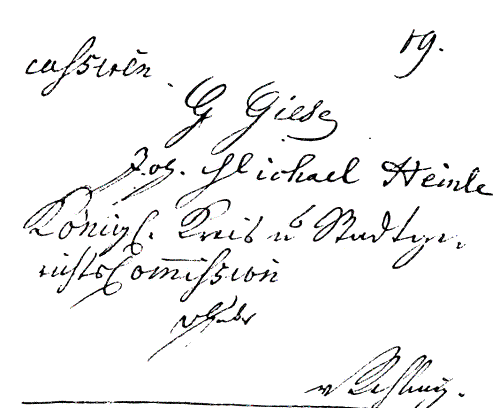 19.
G Giese
Joh. Michael Heinle
Königl. Kreis u Stadtge,
richts Commission